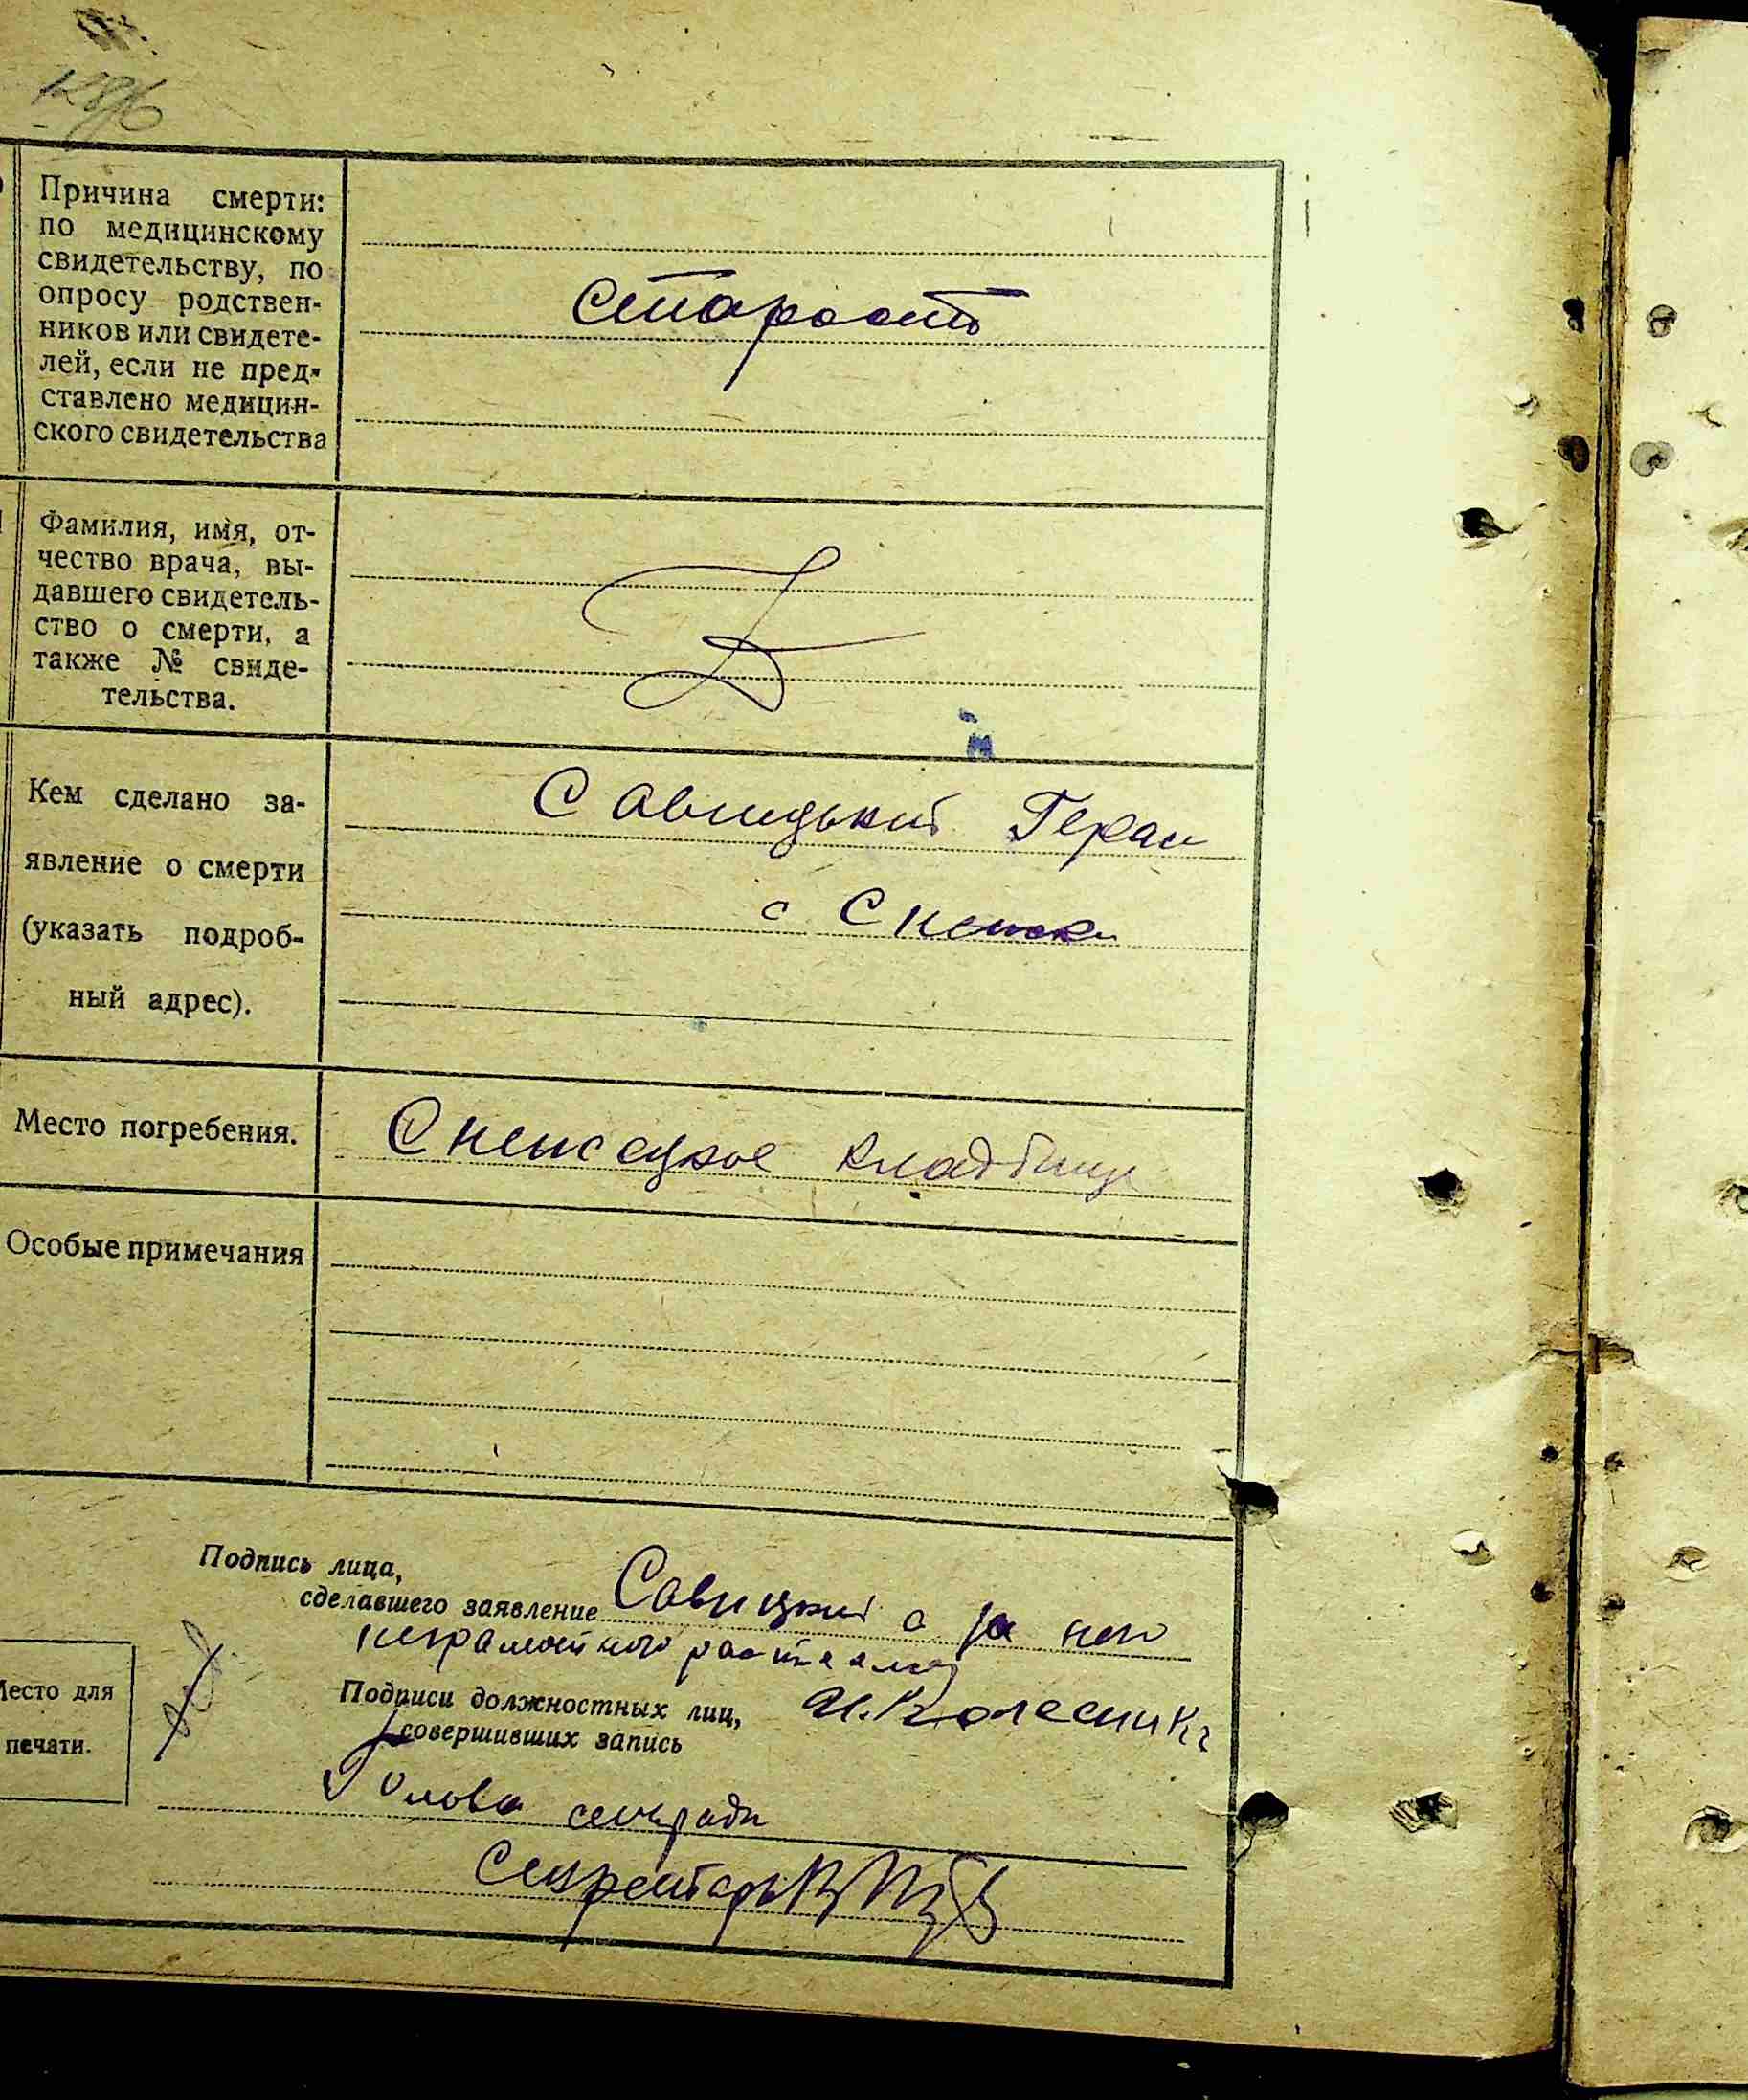 Причина смерти:
по медицинскому
свидетельству, по
опросу родствен-
ников или свидете-
лей, если не пред-
ставлено медицин-
ского свидетельства
старость
Фамилия, имя, от-
чество врача, вы-
давшего свидетель-
ство о смерти, а
также № свиде-
тельства.
Кем сделано за-
явление о смерти
(указать подроб-
ный адрес).
Савицький Герас
с
Место погребения.
кладбище
Особые примечания
Подпись лица,
сделавшего заявление Савицкий а за него
неграмотного
Подписи должностных лиц, И. Колесник
совершивших запись
Место для
печати.
Голова сельради
Секретарь